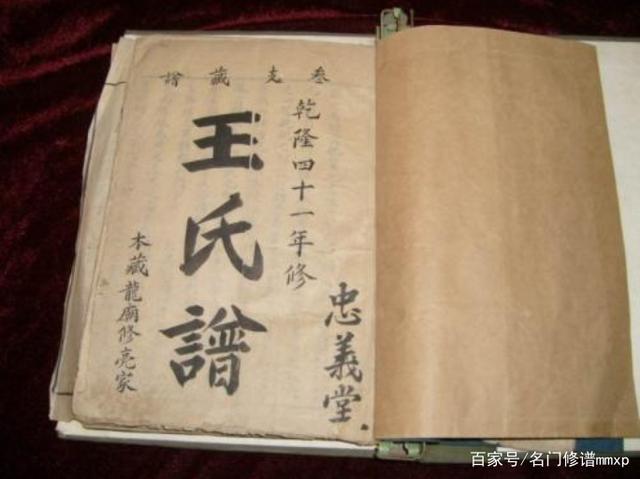 叁支藏譜
忠義堂.
乾隆四十一年修
王氏譜
木藏龍廟修亮家
百家号/名门修谱mmxp